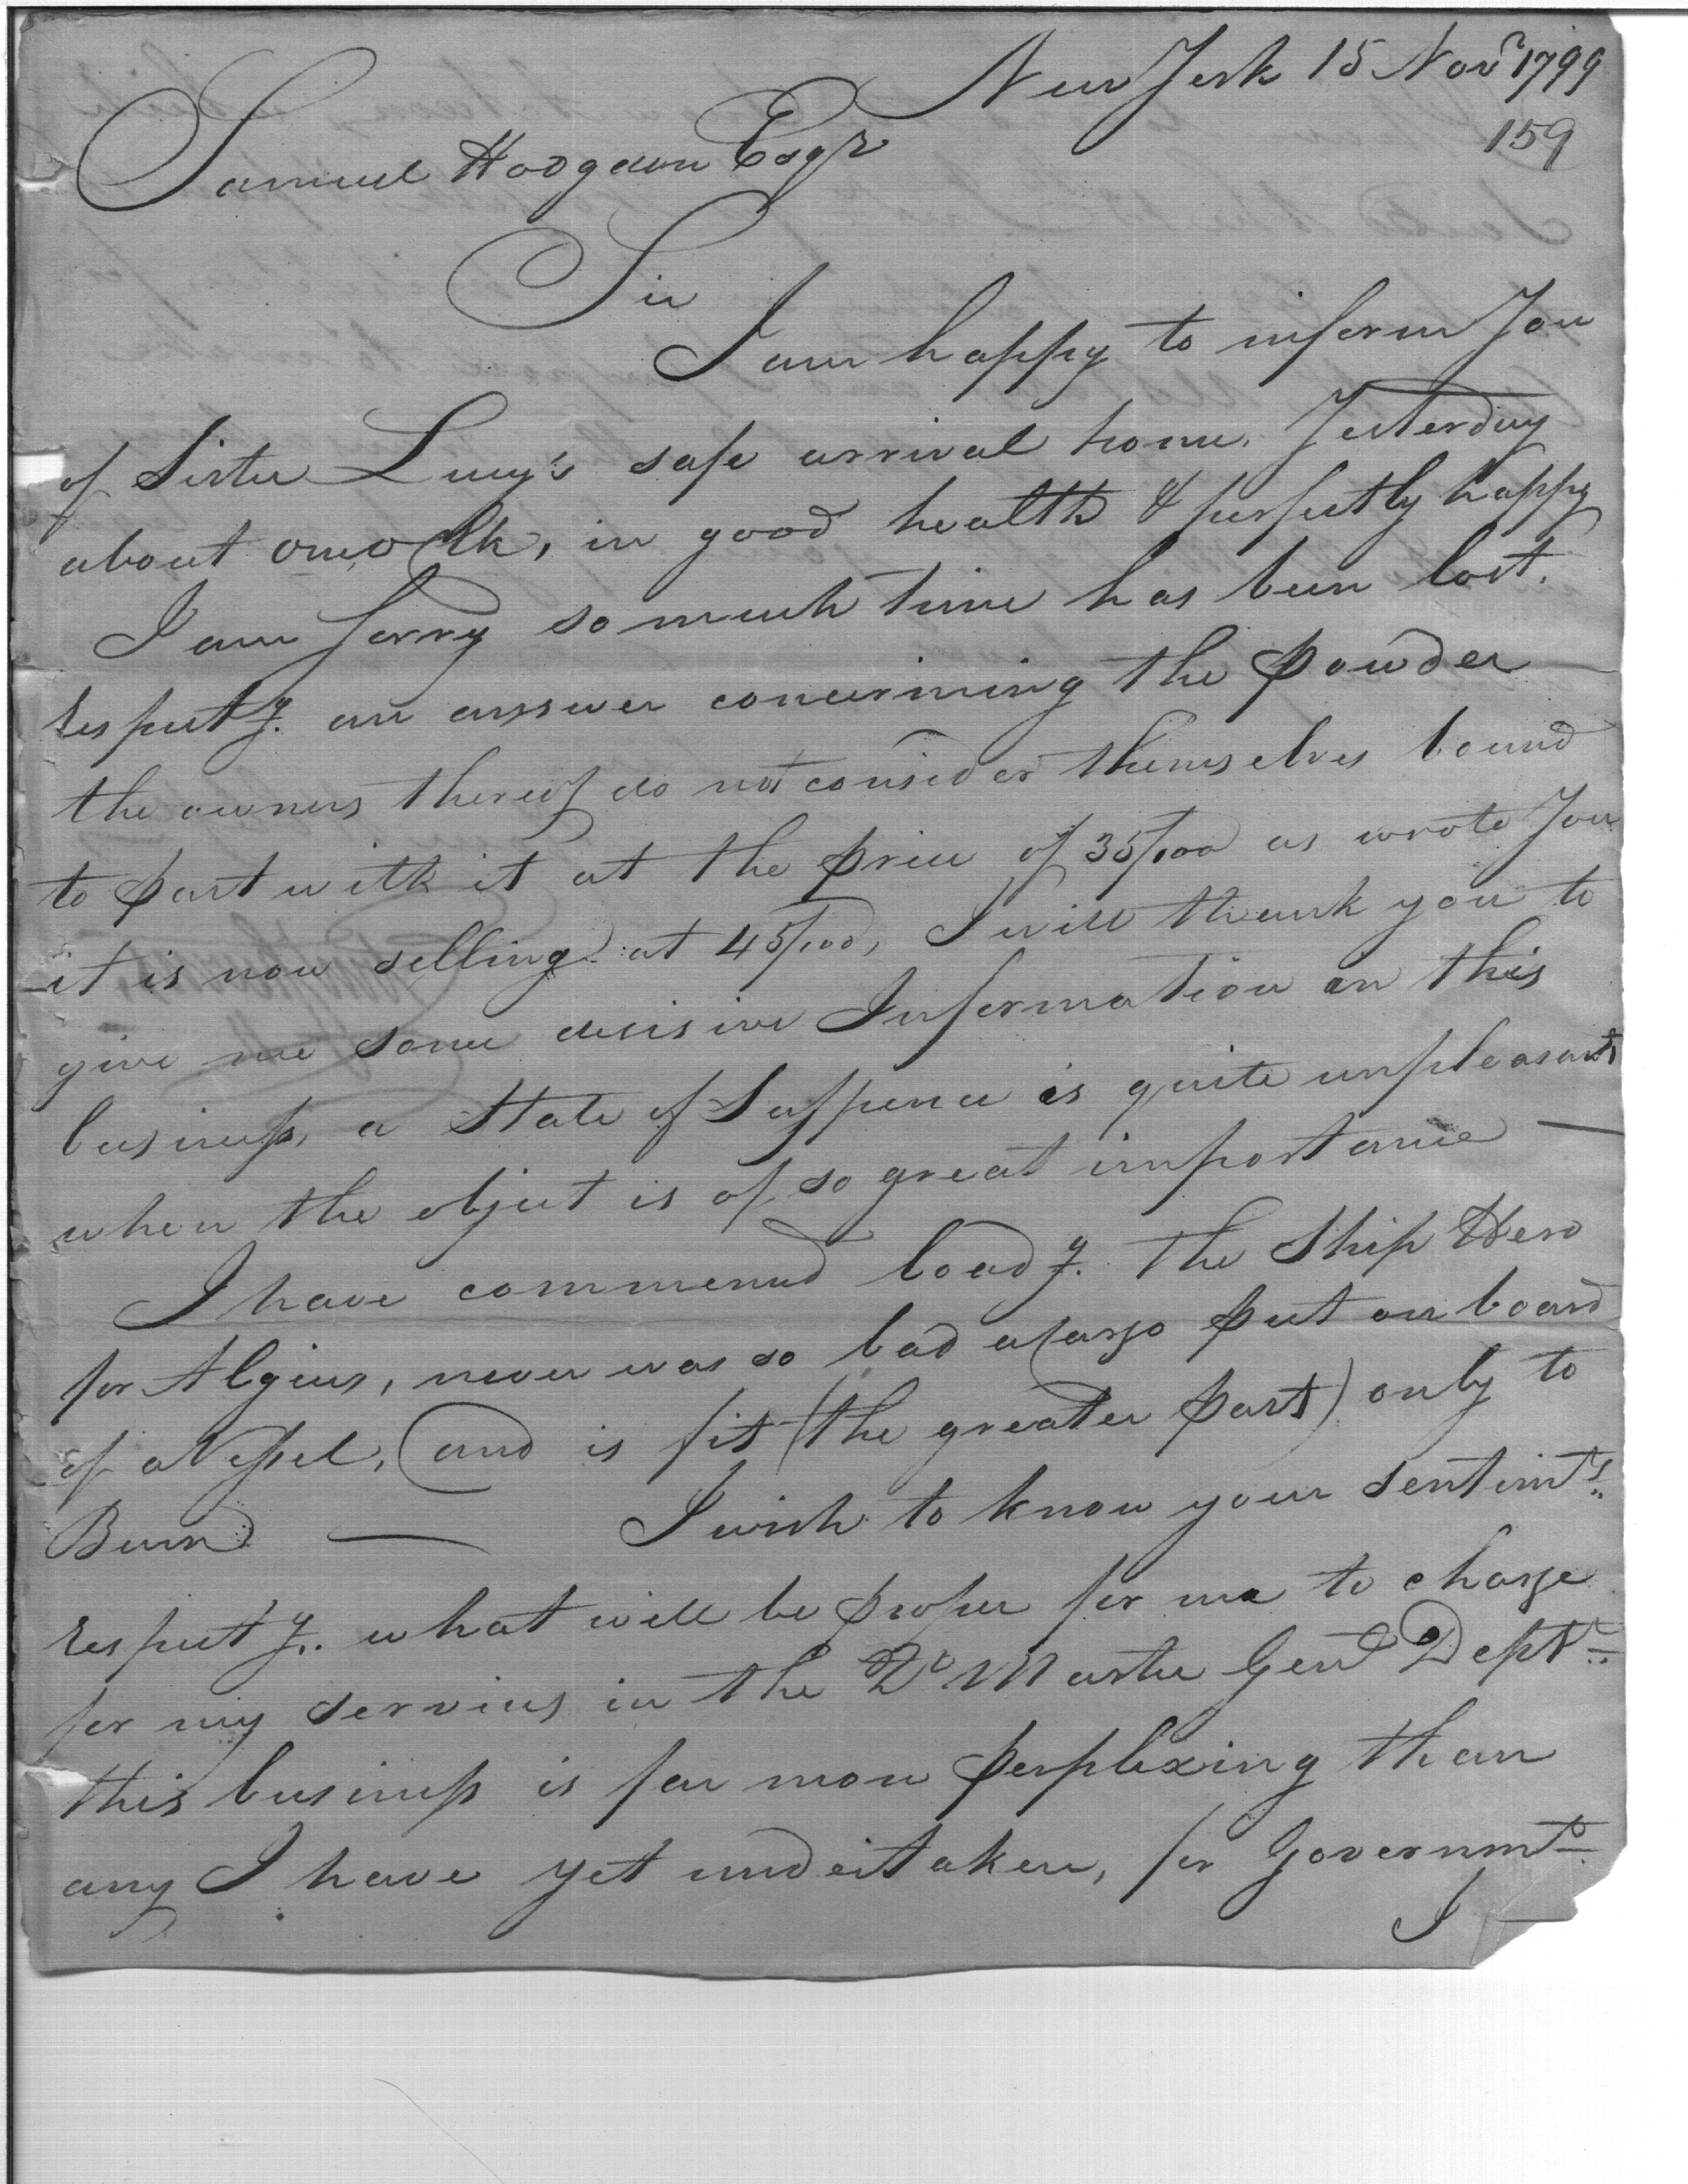 New York 15 Nov.r 1799
159
Samuel Hodgdon Esqr
Sir
I am happy to inform You
of Sister Lucy's safe arrival home. Yesterday
about one oClk, in good health & perfectly happy
I am sorry so much time has been lost.
respectg. an answer concerning the powder
the owners thereof do not consider themselves bound
to part with it at the price of 35/100 as wrote You
it is now selling at 45/100, I will thank you to
give me some decisive Information on this
business, a State of Suspence is quite unpleasant,
when the object is of so great importance —
I have commenced loadg. the Ship Hero
for Algiers, never was so bad a Cargo put on board
of a Vessel, (and is fit (the greater part) only to
Burn — I wish to know your sentimts.
respectg. what will be proper for me to charge
for my services in the Qr Master Genl Deptt.
this business is far more perplexing than
any I have yet undertaken, for Governmt.
I